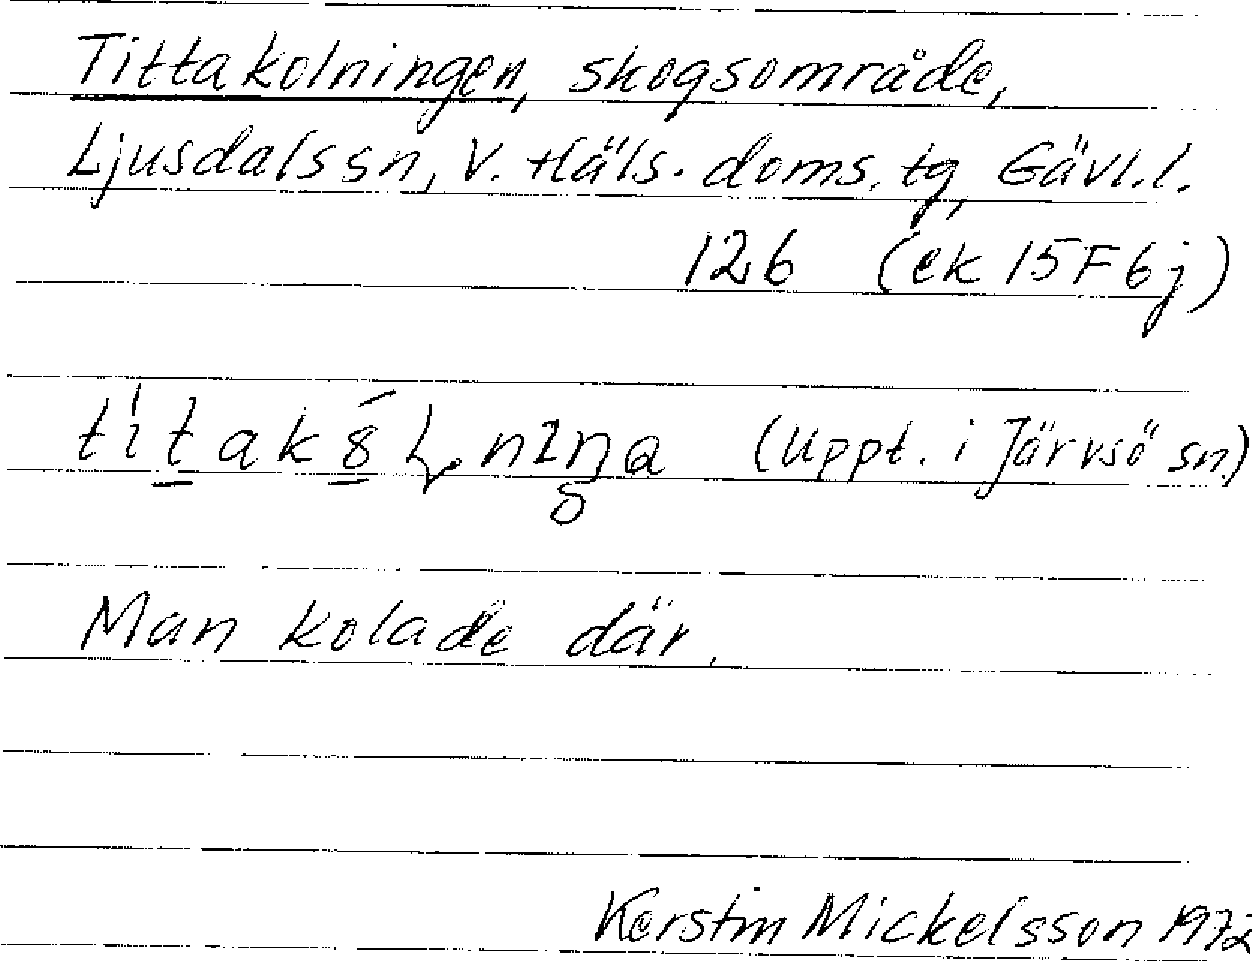 Tittakolningen, skogsområde,
Ljusdals sn, V. Häls. doms. tg, Gävl. l.
126 (ek 15F6j)
(Uppt. i Järvsö sn.)
Man kolade där.
Kerstin Mickelsson 1972